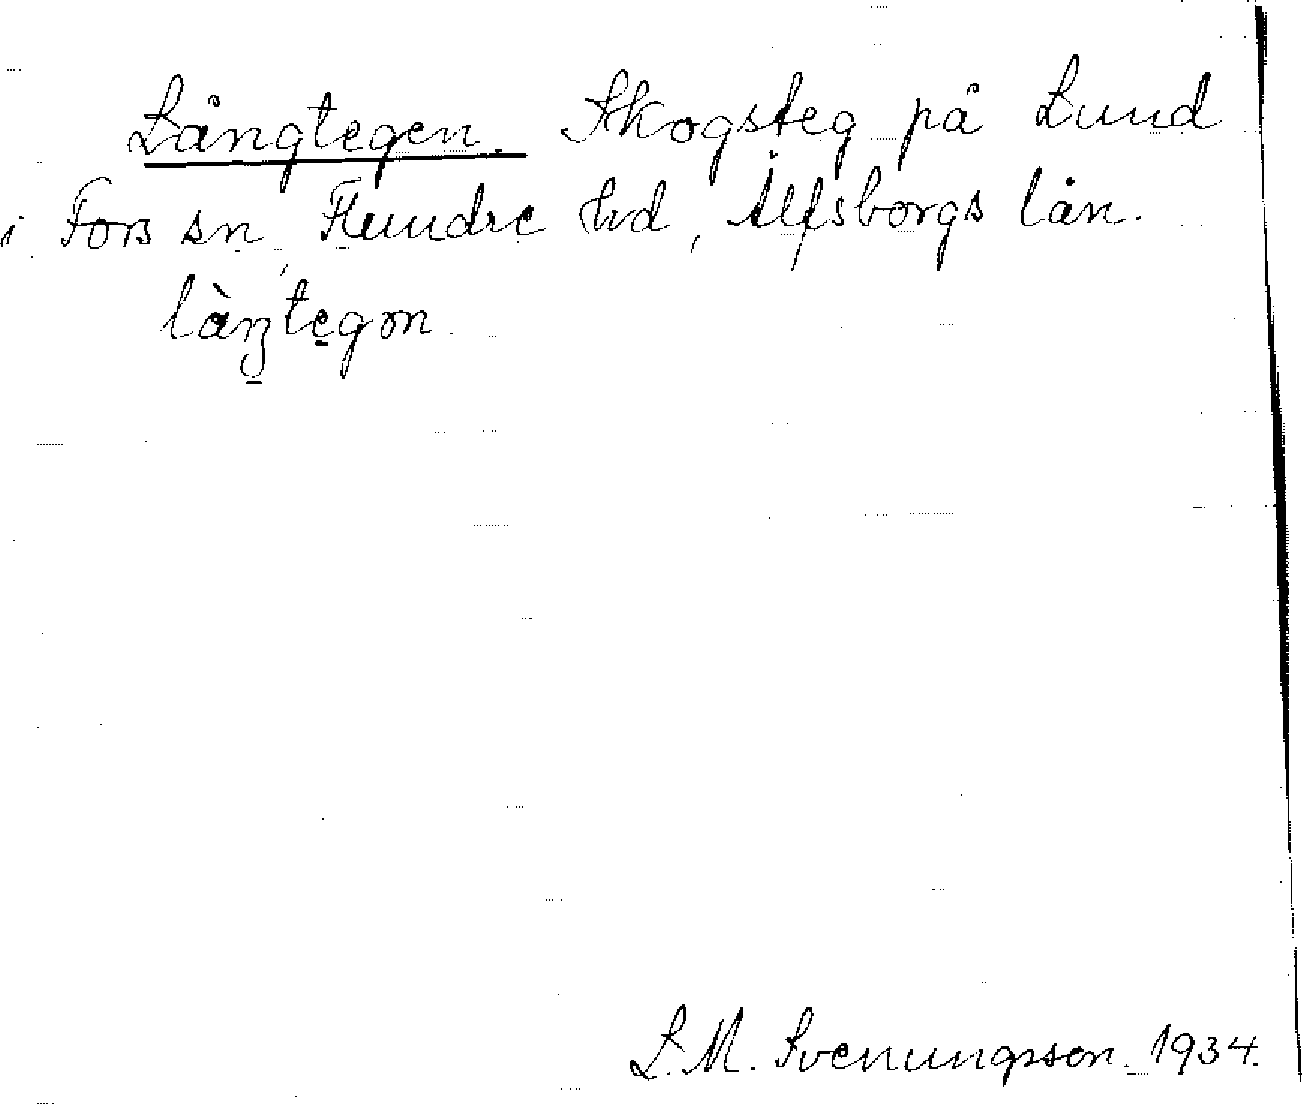 Långtegen. Skogsteg på Lund
i Fors sn, Flundre hd, Älfsborgs län.
làŋtegən
L. M. Svenungsson 1934.